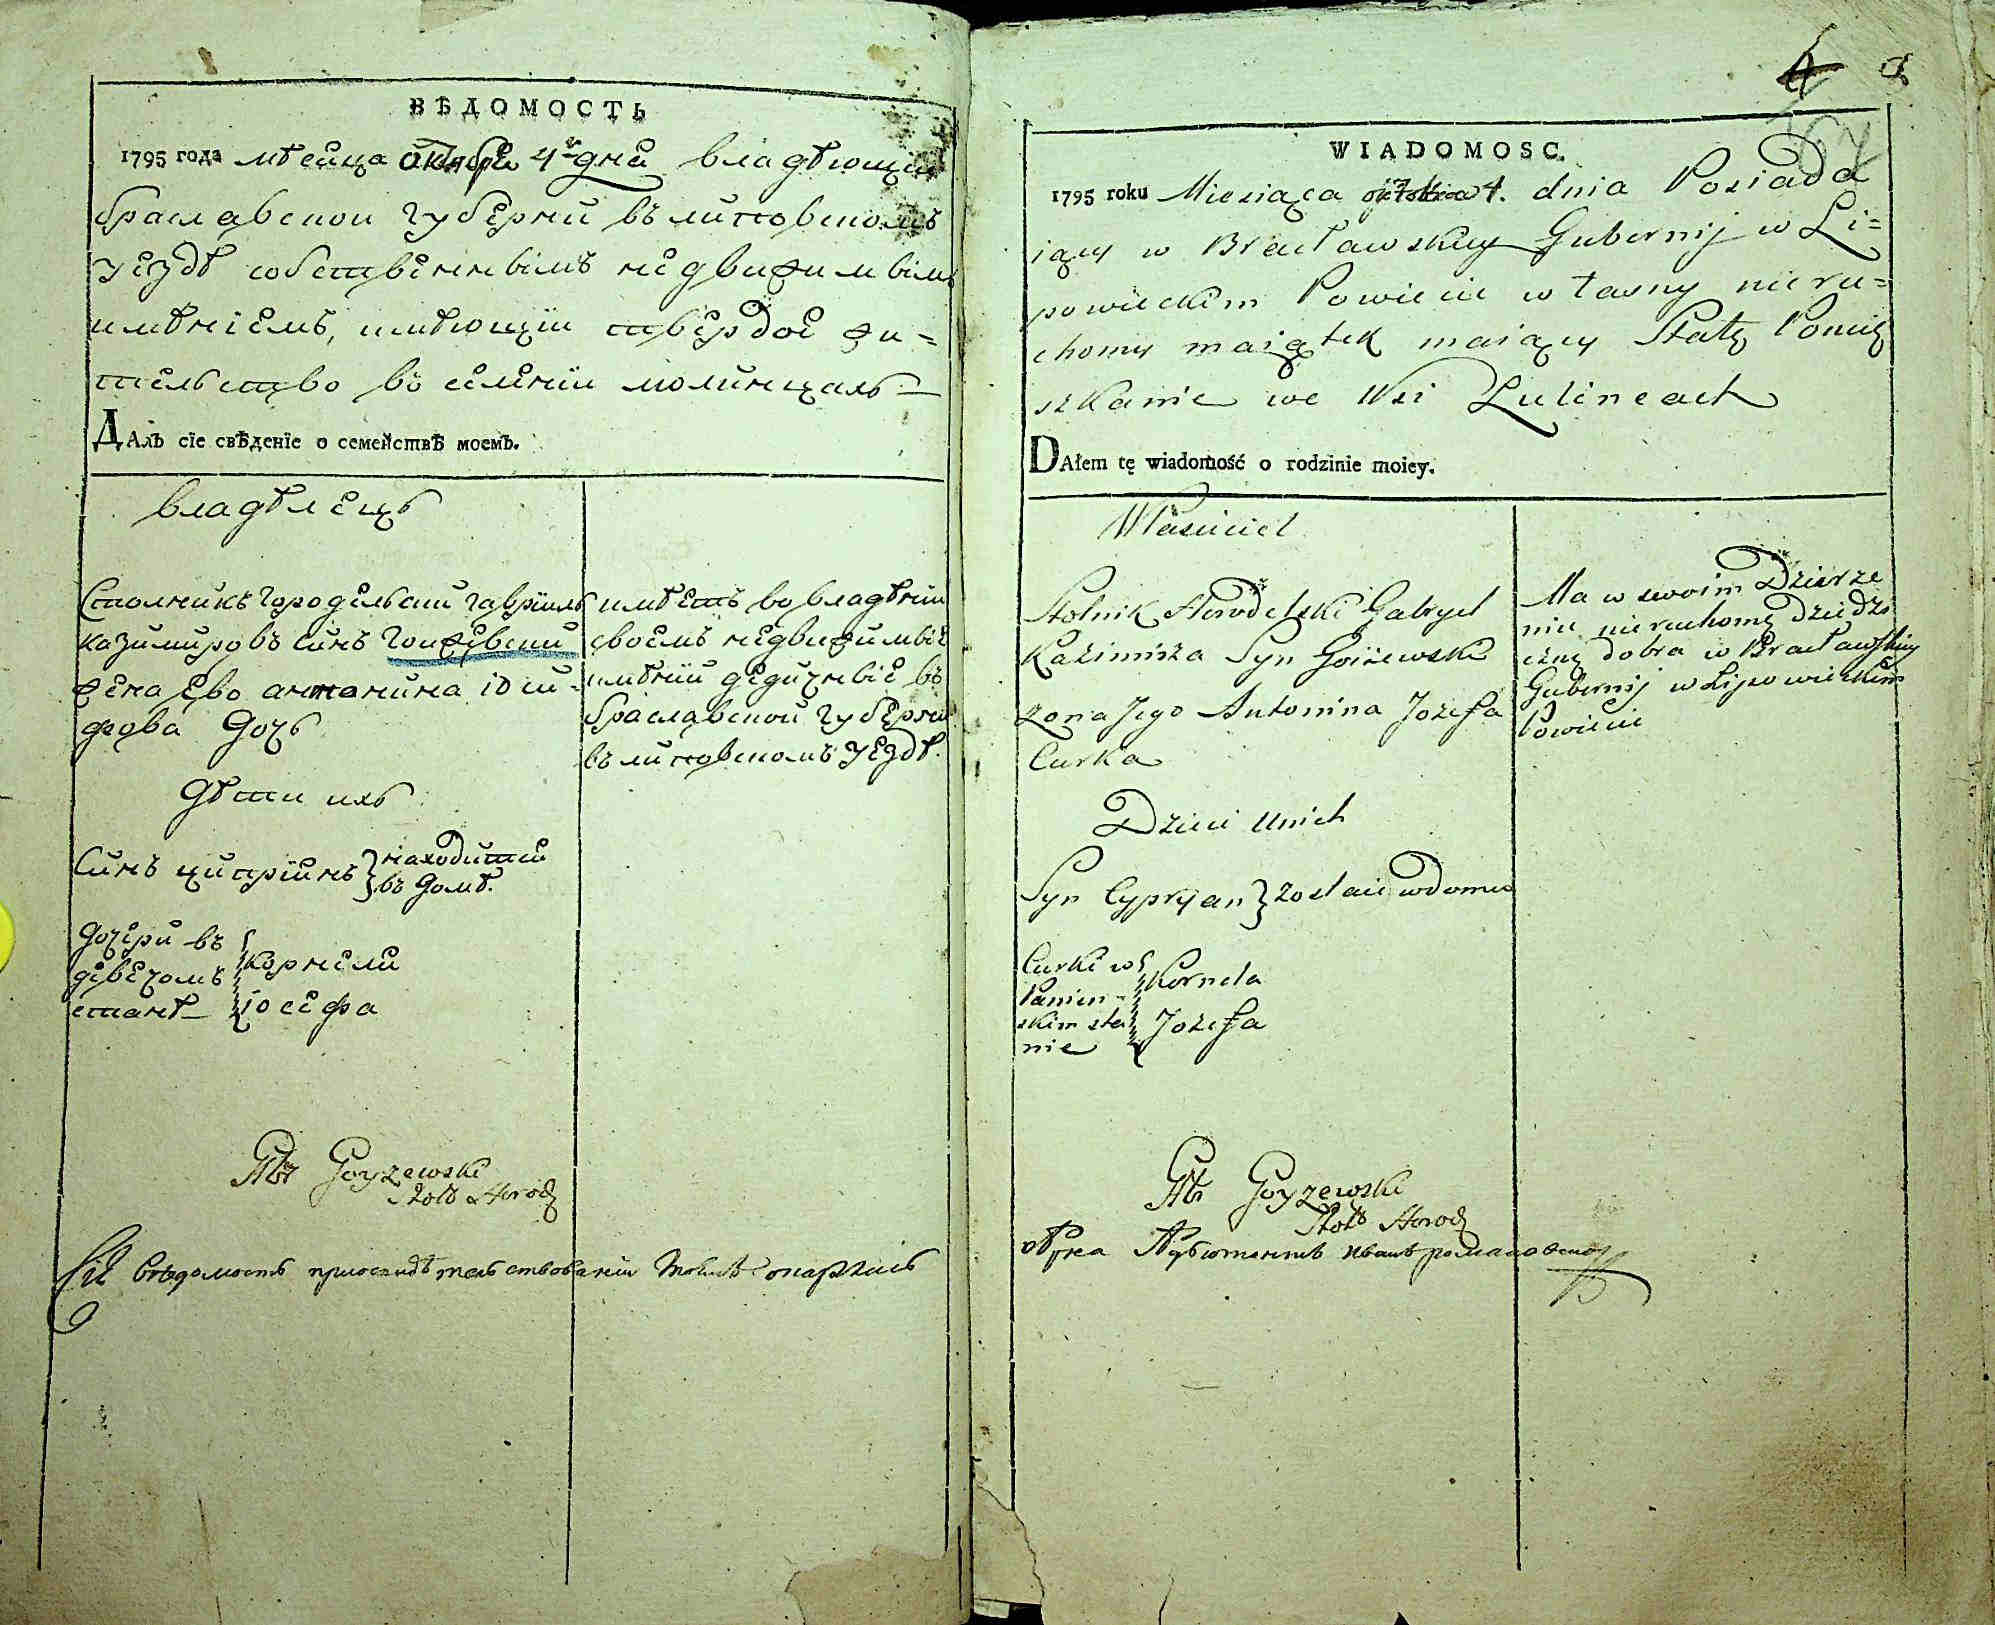 ВѢДОМОСТЬ
1795 года мѣсяца октября 4 дня владѣющий
браславской губернии въ липовскомъ
уездѣ собственнымъ недвижимымъ
имѣниемъ, имѣющий твердое жи=
тельство въ селении люлинцахъ
Далъ сіе свѣденіе о семействѣ моемъ.
владѣлецъ
Столникъ городельский гавриилъ
казимировъ синъ гоижевский
жена ево антонина иози=
фова дочь
дѣти ихъ
Синъ циприянъ } находится
въ домѣ.
дочери въ
девечомъ
станѣ
корнеля
иосефа
имѣетъ во владѣнии
своемъ недвижимые
имѣнии дедичные въ
браславской губернии
въ липовскомъ уездѣ.
Gbr Goyzewski
Stol Horod
Сия вѣдомость
4
WIADOMOSC.
1795 roku Miesiąca 4. dnia Posiada
iący w Bracławskiey Gubernij w Li=
powieckim Powiecie własny nieru=
chomy maiątek maiący Stałę Pomię
szkanie we Wsi Lulincach
Dałem tę wiadomość o rodzinie moiey.
Właściciel
Stolnik Horodelski Gabryel
Kazimirza Syn Goiżewski
żona Jego Antonina Jozefa
Curka
Dzieci Unich
Syn Cypryan } zostaie wdomu
Curki w
Panien-
skim sta
nie
Kornela
Jozefa
Ma w swoim Dzierże
niu nieruchomę Dziedzi
czne dobra w Bracławskiey
Gubernij w Lipowieckim
Powiecie
Gbr Goyzewski
Stol Horod
иванъ романовский